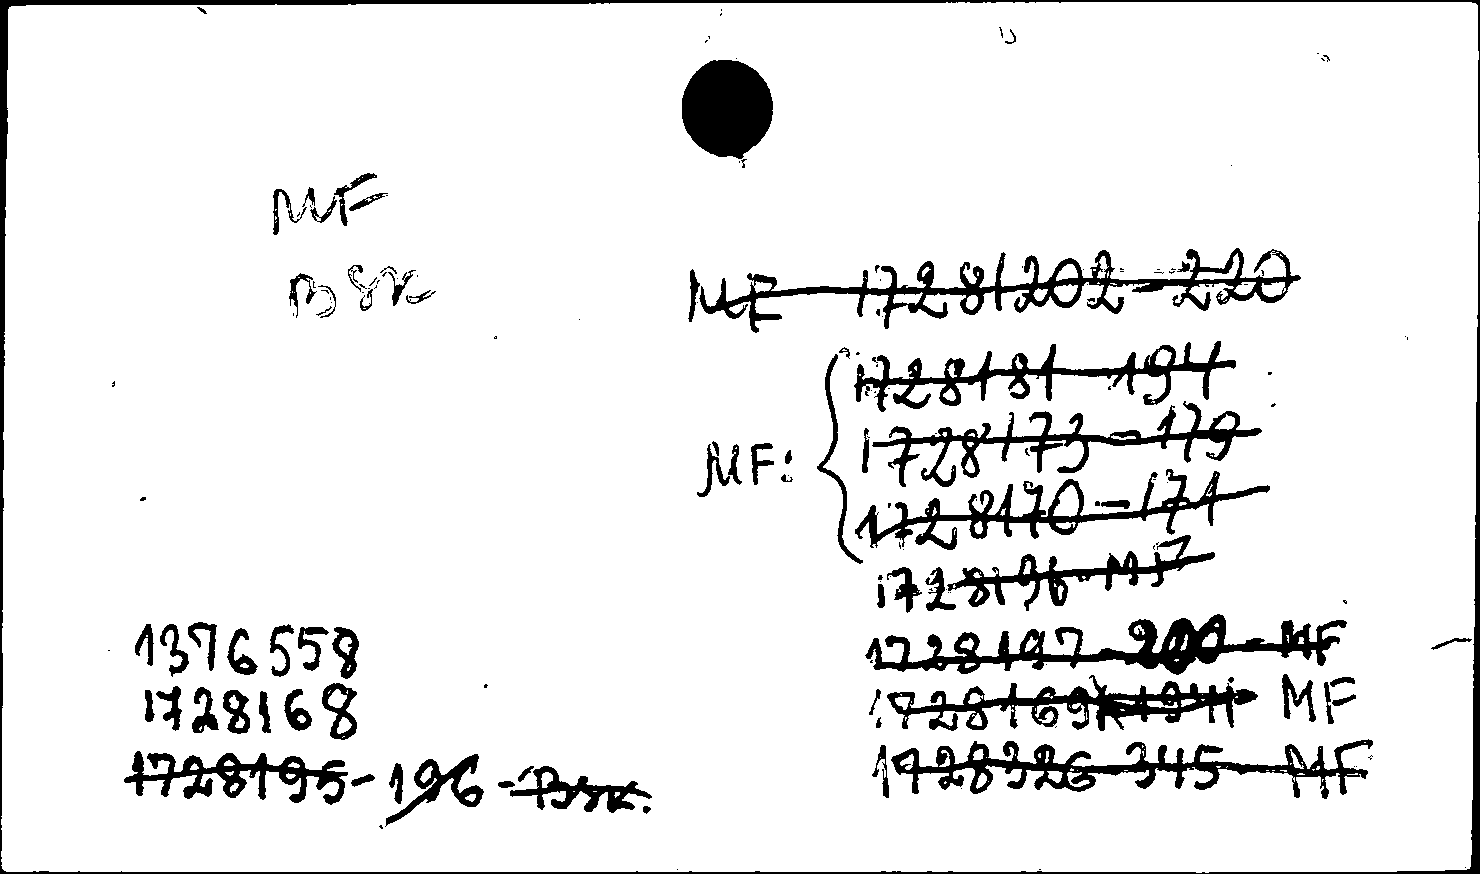 MF
Bsk
MF 1728202-220
MF: 1728181-194
1728173-179
1728170-171
1728196-MF
1376558
1728168
1728195-196-Bsk.
1728197-200-MF
1728169 MF
1728326-345-MF